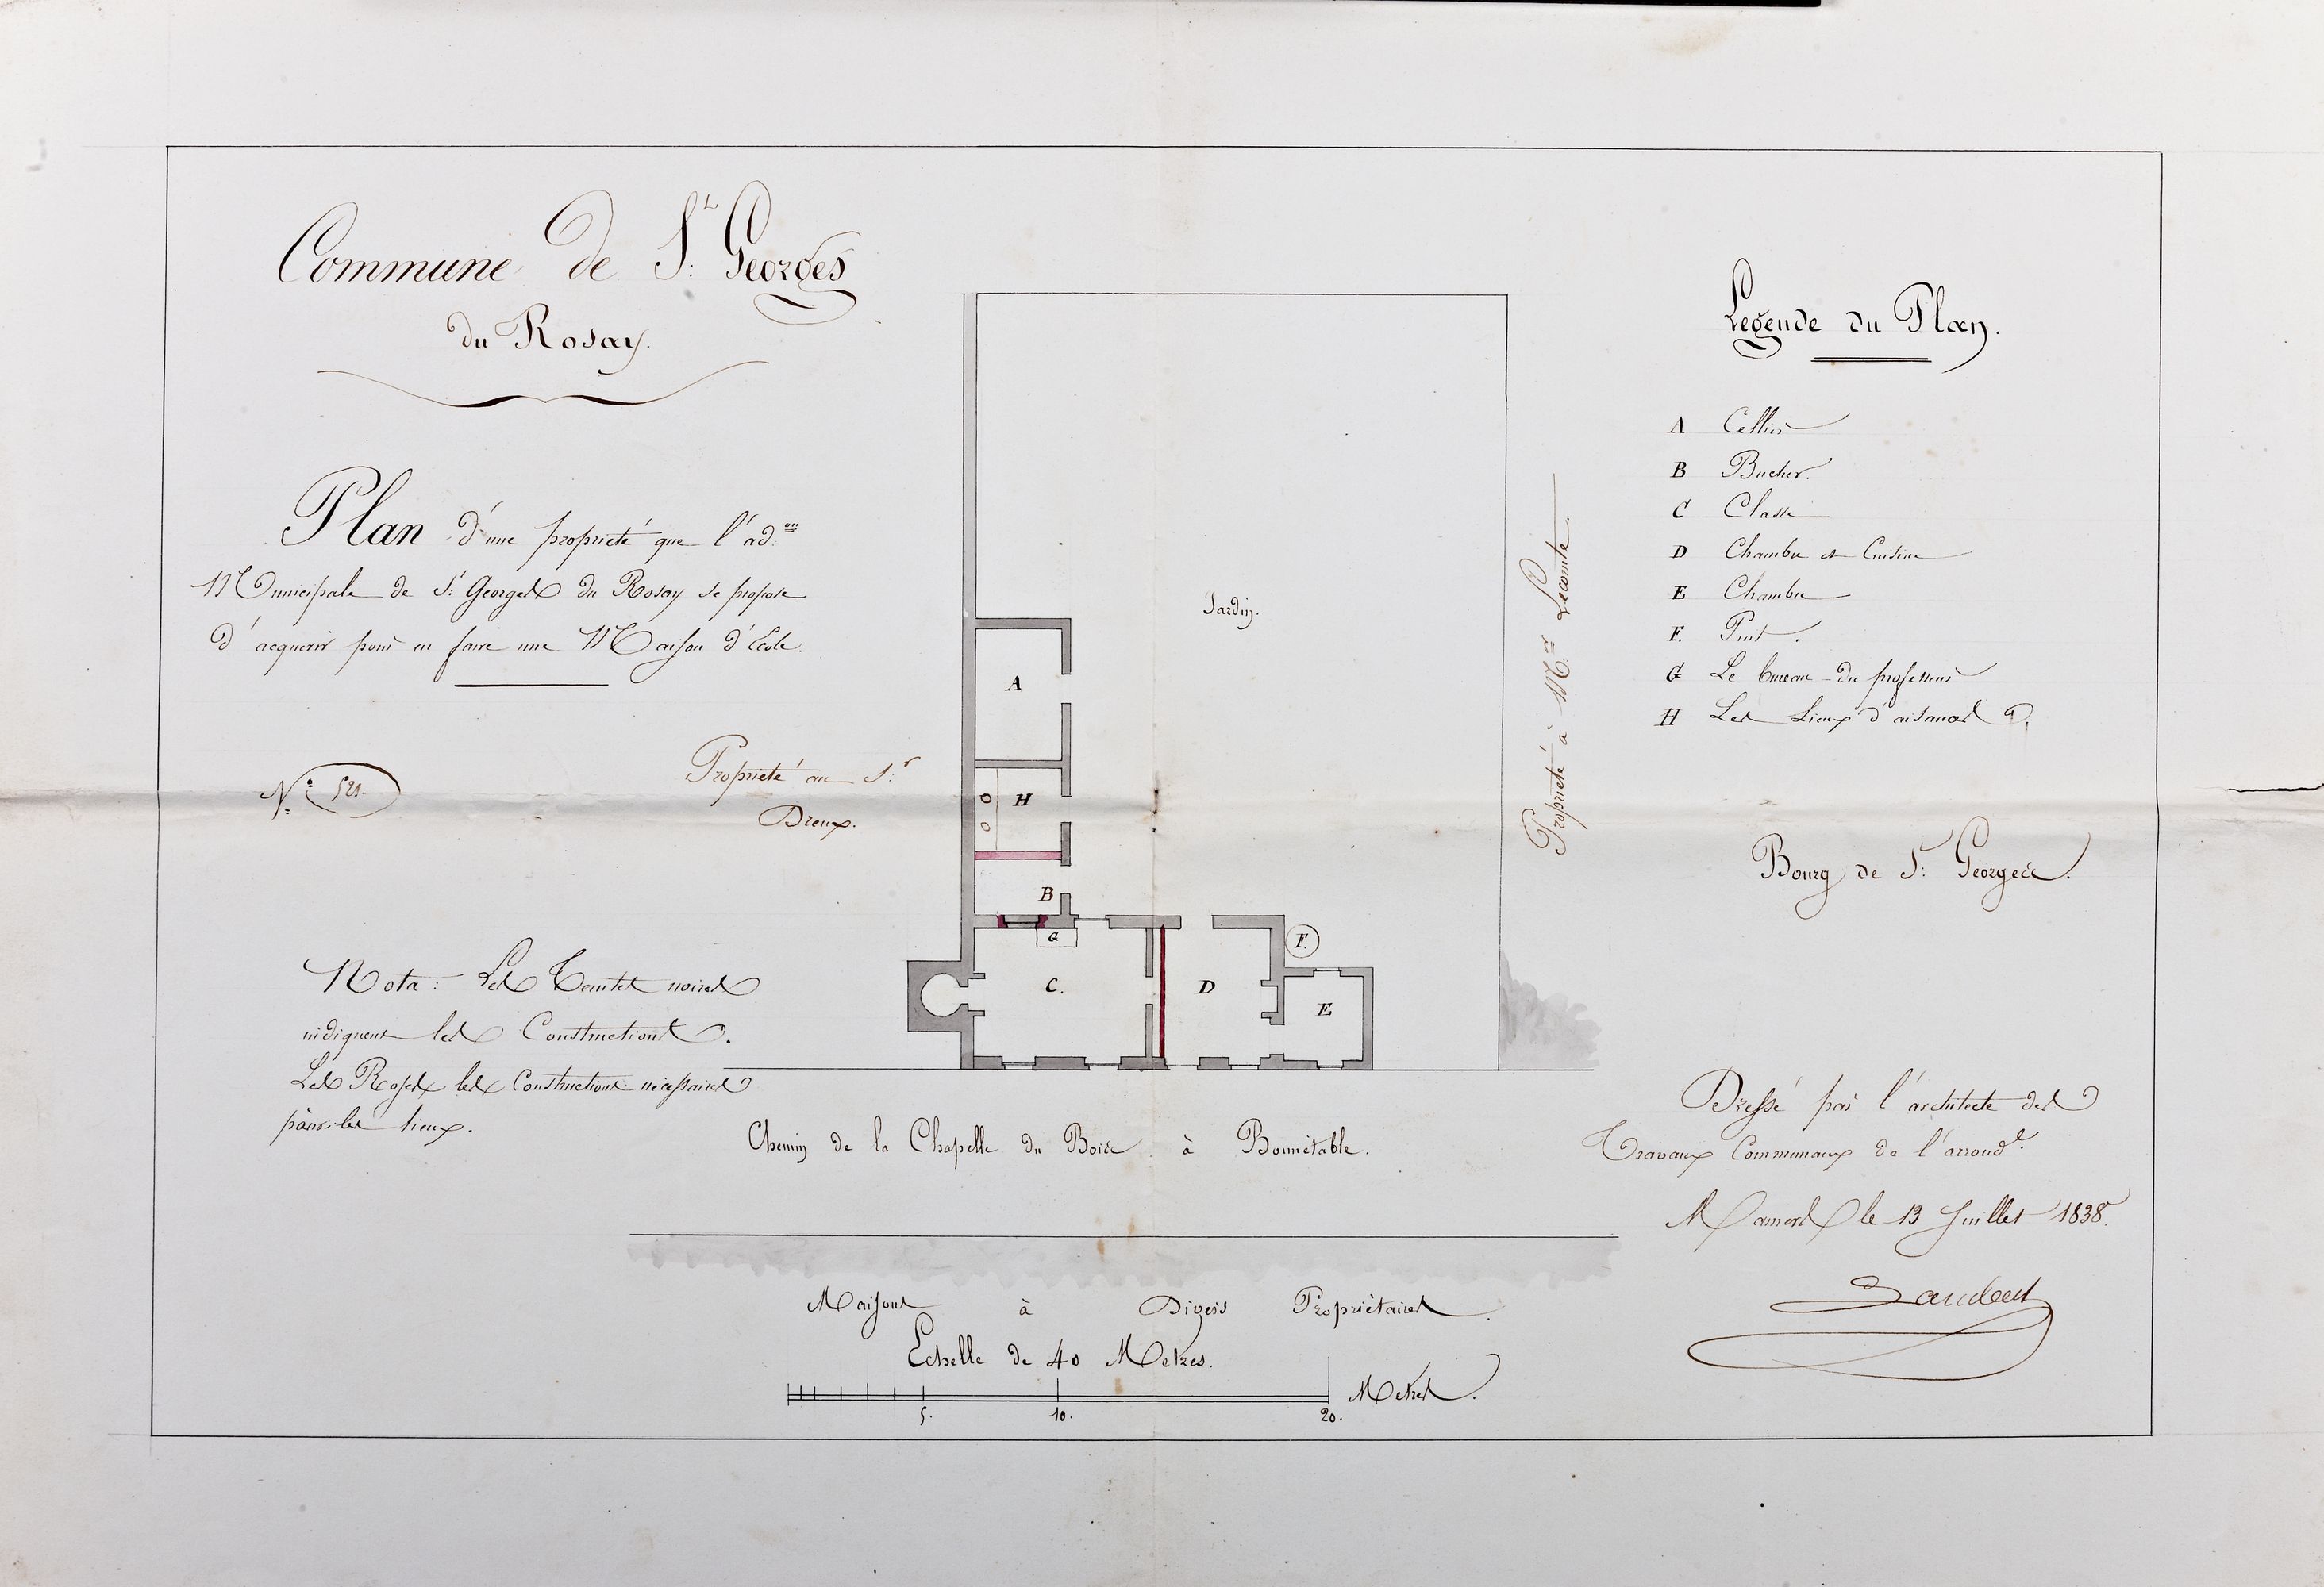 Commune de S.t Georges
du Rosay.
Plan d'une propriété que l'ad.on
Municipale de S.t Georges du Rosay se propose
d'acquerir pour en faire une Maison d'Ecole.
N.o 521.
Propriété au S.r
Dreux.
Nota: Les Teintes noires
indiquent les Constructions.
Les Roses les Constructions nécessaires
pour les lieux.
Jardin.
A
H
B
G
C.
D
E
F.
Propriété à M.r Lecomte.
Chemin de la Chapelle du Bois à Bonnétable.
Maisons à Divers Propriétaires.
Echelle de 40 Metres.
5. 10. 20. Metres.
Legende du Plan.
A Cellier
B Bucher.
C Classe
D Chambre et Cuisine
E Chambre
F. Puit.
G Le bureau du professeur
H Les Lieux d'aisances
Bourg de S.t Georges.
Dressé par l'architecte des
Travaux Communaux de l'arrond.t
Mamers le 13 Juillet 1838.